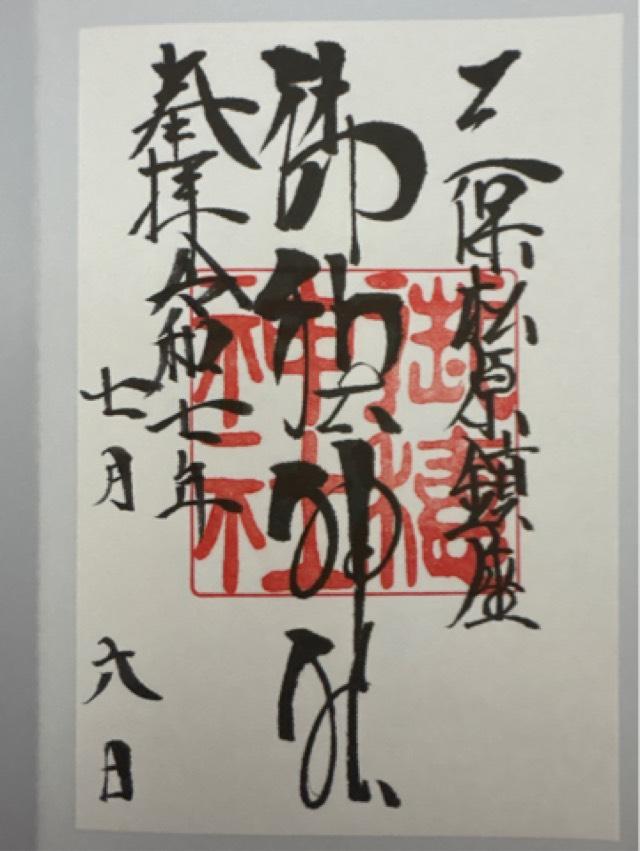 三保松原鎮座
御穂神社
奉拝 令和七年
七月六日
御穂
神社